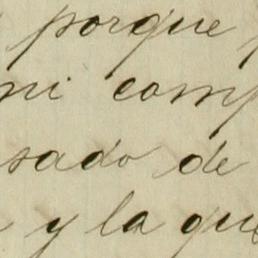 porque
mi comp
sado de
y la que